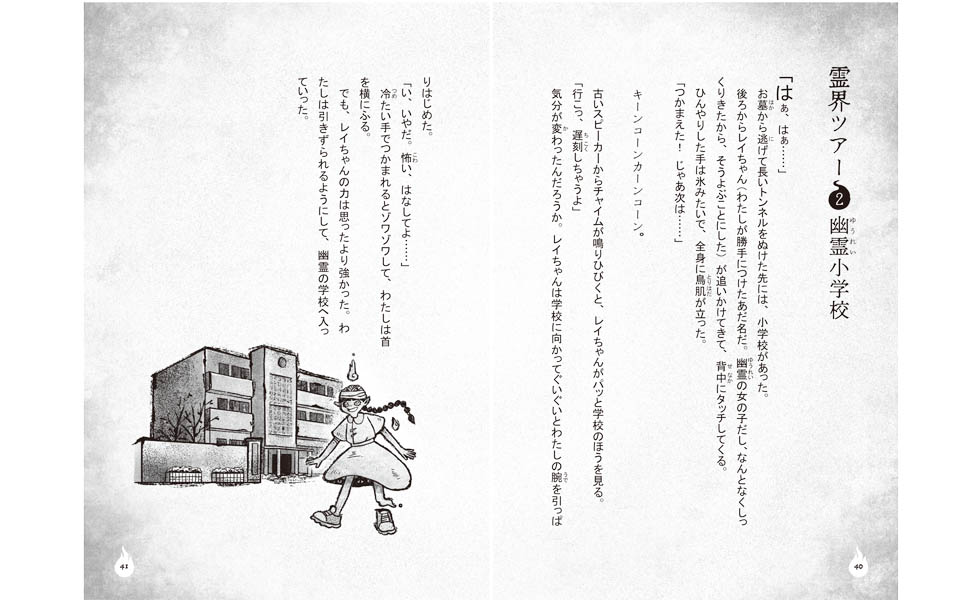 霊界ツアー❷幽霊小学校
「はぁ、はぁ……」
お墓から逃げて長いトンネルをぬけた先には、小学校があった。
後ろからレイちゃん（わたしが勝手につけたあだ名だ。幽霊の女の子だし、なんとなくしっ
くりきたから、そうよぶことにした）が追いかけてきて、背中にタッチしてくる。
ひんやりした手は氷みたいで、全身に鳥肌が立った。
「つかまえた！　じゃあ次は……」
キーンコーンカーンコーン。
古いスピーカーからチャイムが鳴りひびくと、レイちゃんがパッと学校のほうを見る。
「行こっ、遅刻しちゃうよ」
気分が変わったんだろうか。レイちゃんは学校に向かってぐいぐいとわたしの腕を引っぱ
40
りはじめた。
「い、いやだ。怖い、はなしてよ……」
冷たい手でつかまれるとゾワゾワして、わたしは首
を横にふる。
でも、レイちゃんの力は思ったより強かった。わ
たしは引きずられるようにして、幽霊の学校へ入っ
ていった。
41